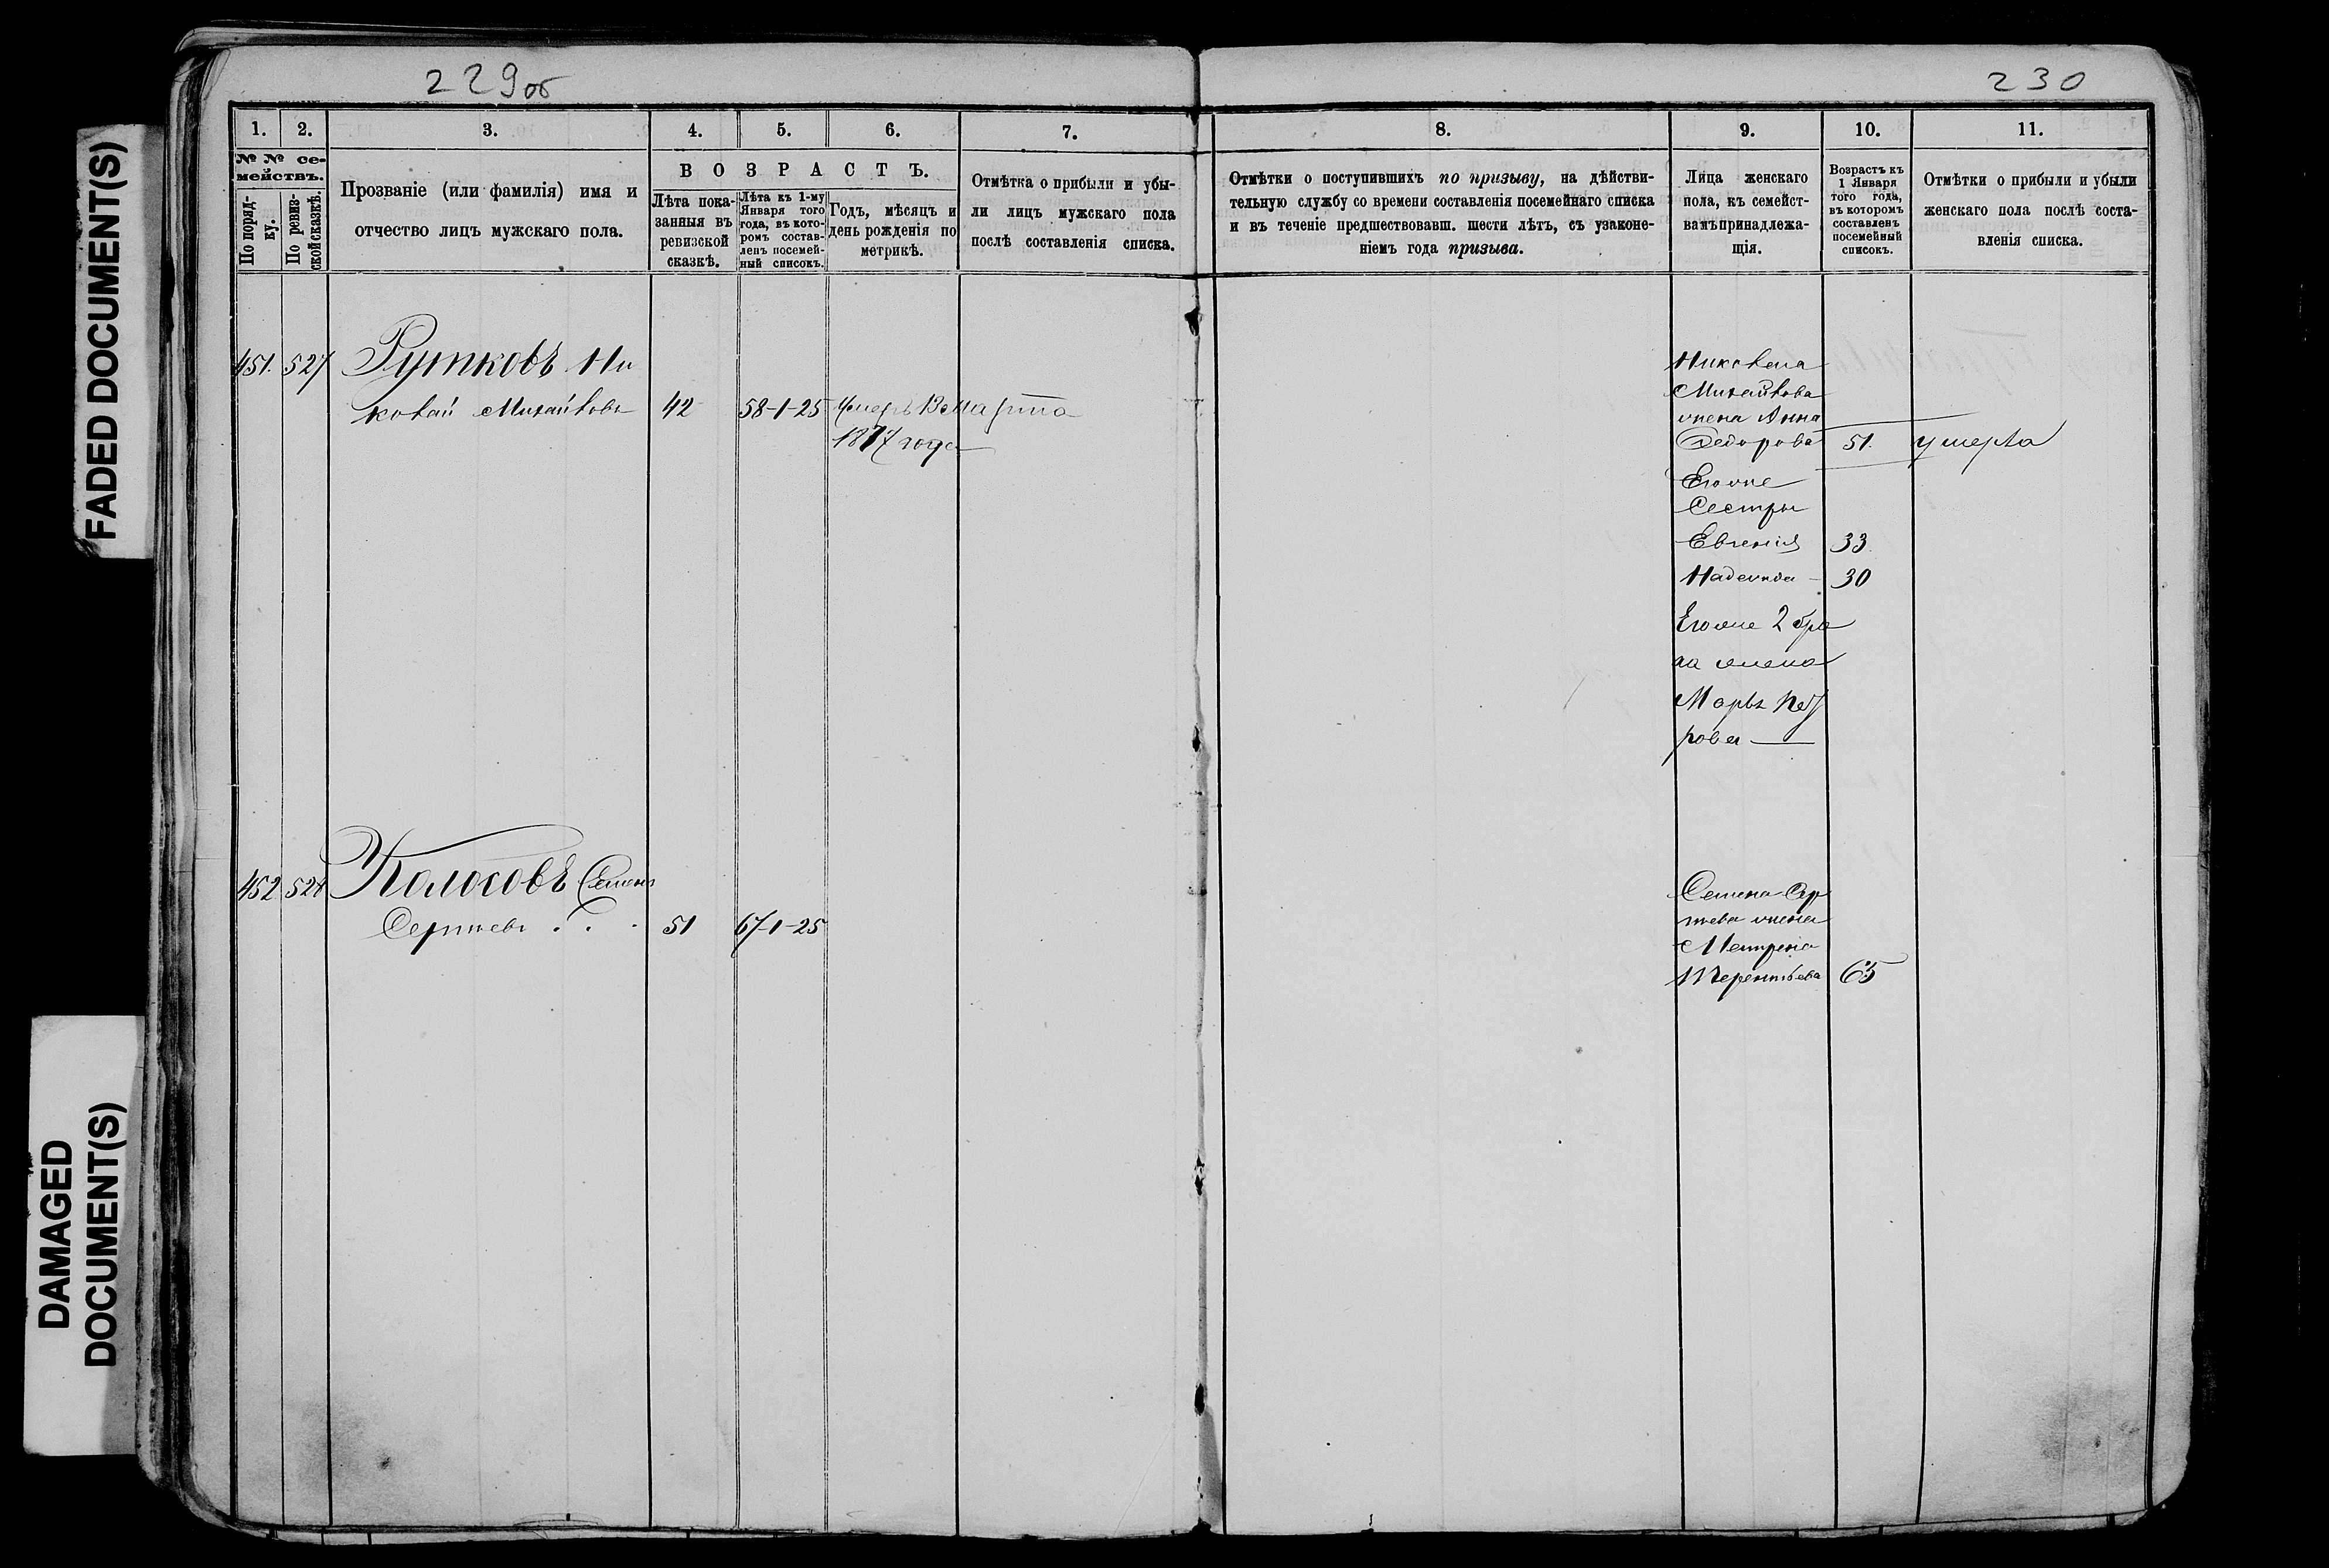 FADED DOCUMENT(S)
DAMAGED
DOCUMENT(S)
229об
230
1. 2. 3. 4. 5. 6. 7. 8. 9. 10. 11.
№ № се-
мействъ.
По поряд-
ку.
По ревиз-
ской сказкѣ.
Прозваніе (или фамилія) имя и
отчество лицъ мужскаго пола.
ВОЗРАСТЪ.
Лѣта пока-
занныя въ
ревизской
сказкѣ.
Лѣта къ 1-му
Января того
года, въ кото-
ромъ состав-
ленъ посемей-
ный списокъ.
Годъ, мѣсяцъ и
день рожденія по
метрикѣ.
Отмѣтка о прибыли и убы-
ли лицъ мужскаго пола
послѣ составленія списка.
Отмѣтки о поступившихъ по призыву, на дѣйстви-
тельную службу со времени составленія посемейнаго списка
и въ теченіе предшествовавш. шести лѣтъ, съ узаконе-
ніемъ года призыва.
Лица женскаго
пола, къ семейст-
вамъ принадлежа-
щія.
Возрастъ къ
1 Января
того года,
въ которомъ
составленъ
посемейный
списокъ.
Отмѣтки о прибыли и убыли
женскаго пола послѣ соста-
вленія списка.
451. 527 Рутковъ Ни
колай Михайловъ 42 58-1-25 Умеръ марта
1877 года
Николая
Михайлова
жена Анна
Федорова 51. умерла
Егоже
Сестры
Евгенія 33
Надежда 30
Егоже 2 бра
та жена
Марья Пет
рова
452 528 Колосовъ Семенъ
Сергѣевъ . . . 51 67-1-25
Семена Сер
гѣева жена
Матрена
Терентьева 65